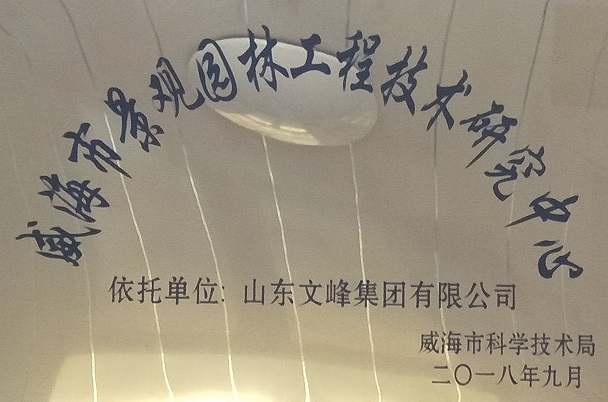 威海市景观园林工程技术研究中心
依托单位: 山东文峰集团有限公司
威海市科学技术局
二〇一八年九月